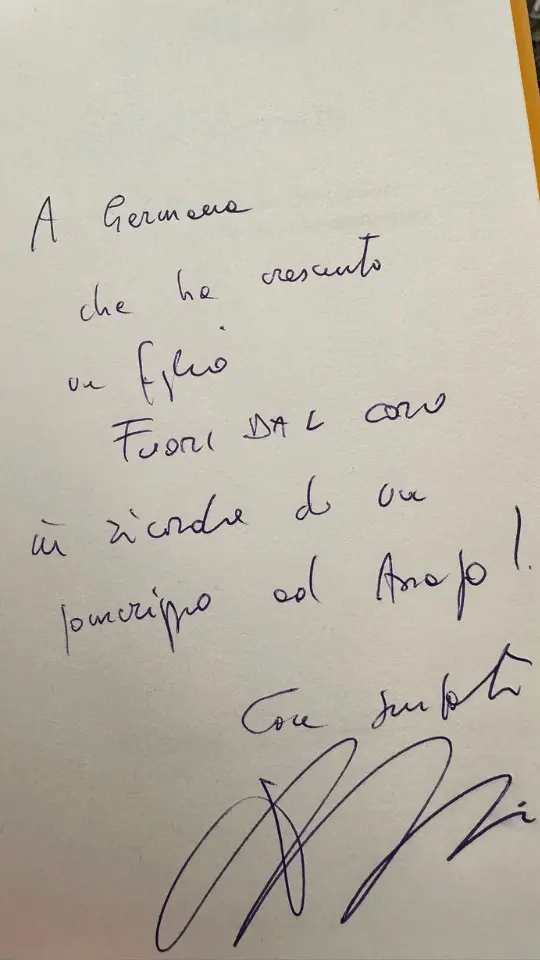 A Germana
che ha cresciuto
un figlio
FUORI DAL coro
in ricordo di un
pomeriggio ad
Con simpatia